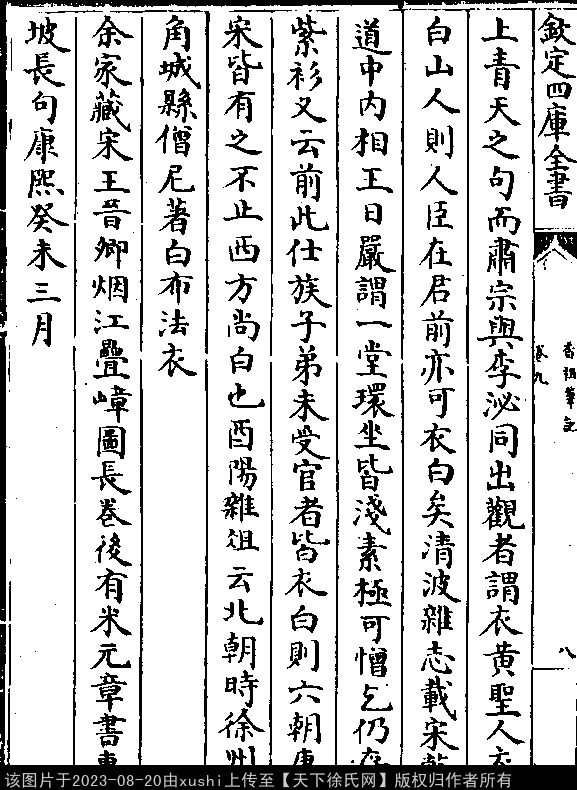 欽定四庫全書
香祖筆記
卷九
八
上青天之句而肅宗與李泌同出觀者謂衣黃聖人衣
白山人則人臣在君前亦可衣白矣清波雜志載宋乾
道中内相王日嚴謂一堂環坐皆淺素極可憎乞仍存
紫衫又云前此仕族子弟未受官者皆衣白則六朝唐
宋皆有之不止西方尚白也酉陽雜俎云北朝時徐州
角城縣僧尼著白布法衣
余家藏宋王晉卿烟江疊嶂圖長卷後有米元章書東
坡長句康熙癸未三月
该图片于2023-08-20由xushi上传至【天下徐氏网】版权归作者所有